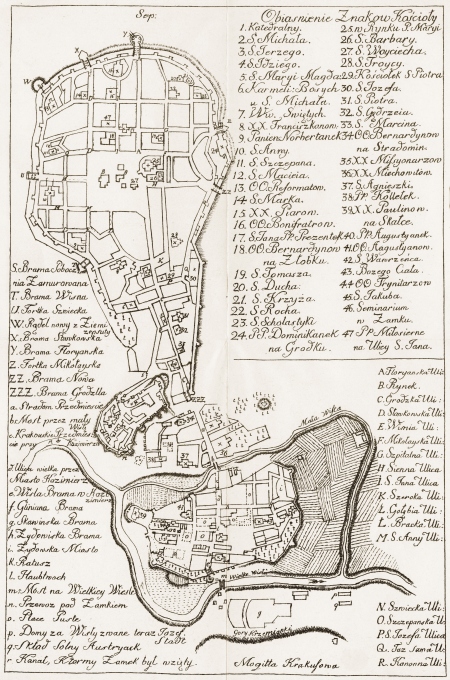 Sep:
Obiasnienie Znakow Kościoły
1. Katedralny.
2. S Michała.
3. S Jerzego.
4. S Idziego.
5. S Maryi Magda:
6. Karmeli: Bosych
u S. Michała
7. Ww. Swiętych.
8. XX Franciszkonow
9. Panien Norbertanek
10. S Anny.
11. S Szczepana.
12. S Macieia.
13. OO. Reformatow.
14 S Marka.
15 XX Piarow.
16. OO. Bonifratrow.
17. S. Jana Pp. Prezentek
18. OO: Bernardynow
na Złobku.
19. S Tomasza.
20. S. Ducha.
21. S. Krzyża.
22. S Rocha.
23. S Scholastyki
24. PP. Dominikanek
na Grodku.
25. w Rynku P. Maryi
26. S. Barbary.
27. S Woyciecha.
28. S Troycy.
29. Kościołek S Piotra
30. S Jozefa.
31. S Piotra.
32. S. Gedrzeia.
33. S Marcina.
34. OO. Bernardynow
na Stradomin.
35. XX Missyonarzow
36. XX Miechowitow.
37. S Agnieszki.
38. Pp. Kolletek.
39. XX. Paulinow
na Skałce.
40. Pp. Augustyanek.
41. OO. Augustyanow.
42 S Wawrzeńca.
43. Bożego Ciała.
44 OO Trynitarzow
45 S. Jakuba.
46 Seminarium
w Zamku.
47 Pp. Miłosierne
na Ulicy S. Jana.
S. Brama Poboczna
Zamurowana
T. Brama Wislna
U Fortka Szewcka
W. Rądel nowy z Ziemi
X. Brama Sławkowska
Y. Brama Floryanska
Z. Fortka Mikolayska
ZZ. Brama Nowa
ZZZ. Brama Grodzka
a. Stradom Przedmiescie
b. Most przez małą
Wisłę
c. Krakowskie Przedmies:
cie przy Kazimierzu
d. Ulica wielka przez
Miasto Kazimierz
e. Wisła Brama w Kazi
mierzu
f. Gliniana Brama
g. Skawinska Brama
h. Żydowska Brama
i. Żydowskie Miasto
k. Ratusz
l. Haubtwach
m. Most na Wielkiey Wisle
n. Przewoz pod Zamkiem
o. Place Puste
p. Domy za Wisłą zwane teraz Jozef
Stadt
q. Skład Solny Austryack
r Kanał, Ktormy Zamek był wzięty.
A. Floryanska Uli:
B. Rynek.
C. Grodzka Uli:
D. Sławkowska Uli:
E. Wislna Uli:
F. Mikolayska Uli:
G. Szpitalna Uli:
H. Sienna Ulica
I. S. Jana Ulica
K. Szeroka Uli:
L. Gołębia Uli:
Ł. Bracka Uli:
M. S Anny Uli:
N. Szewcka Uli:
O. Szczepanska Uli:
P. S. Jozefa Ulica
R. Kanonna Uli:
Mała Wisła
m Wielka Wisła
Gory Krzemionki
Mogiłła Krakusowa